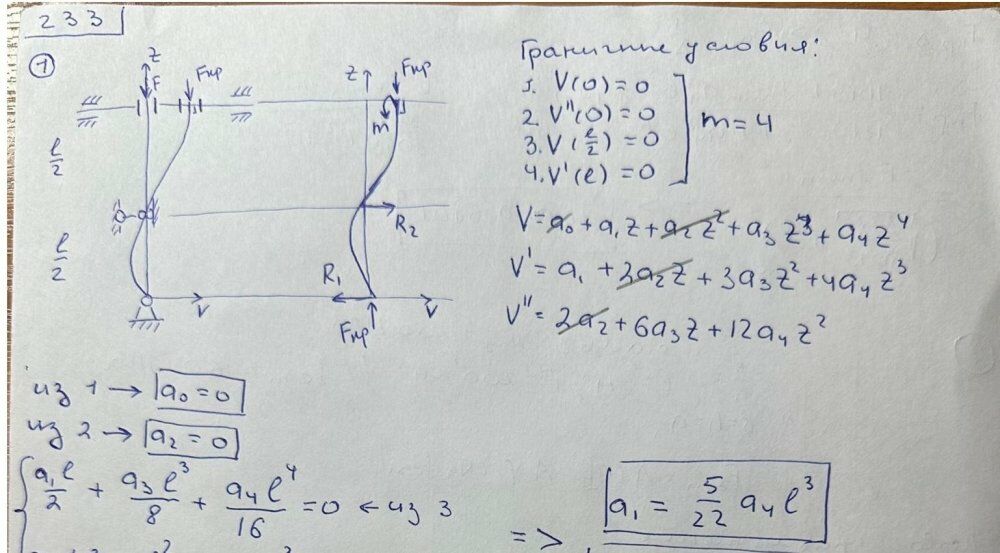 233
1
z
F
Fкр
z
Fкр
m
l/2
R₂
l/2
R₁
v
Fкр
v
Граничные условия:
1. V(0)=0
2. V''(0)=0
3. V(l/2)=0
4. V'(l)=0
m=4
V=a₀+a₁z+a₂z²+a₃z³+a₄z⁴
V'=a₁+2a₂z+3a₃z²+4a₄z³
V''=2a₂+6a₃z+12a₄z²
из 1 → a₀=0
из 2 → a₂=0
a₁l/2 + a₃l³/8 + a₄l⁴/16 =0 ← из 3
=> a₁ = 5/22 a₄l³